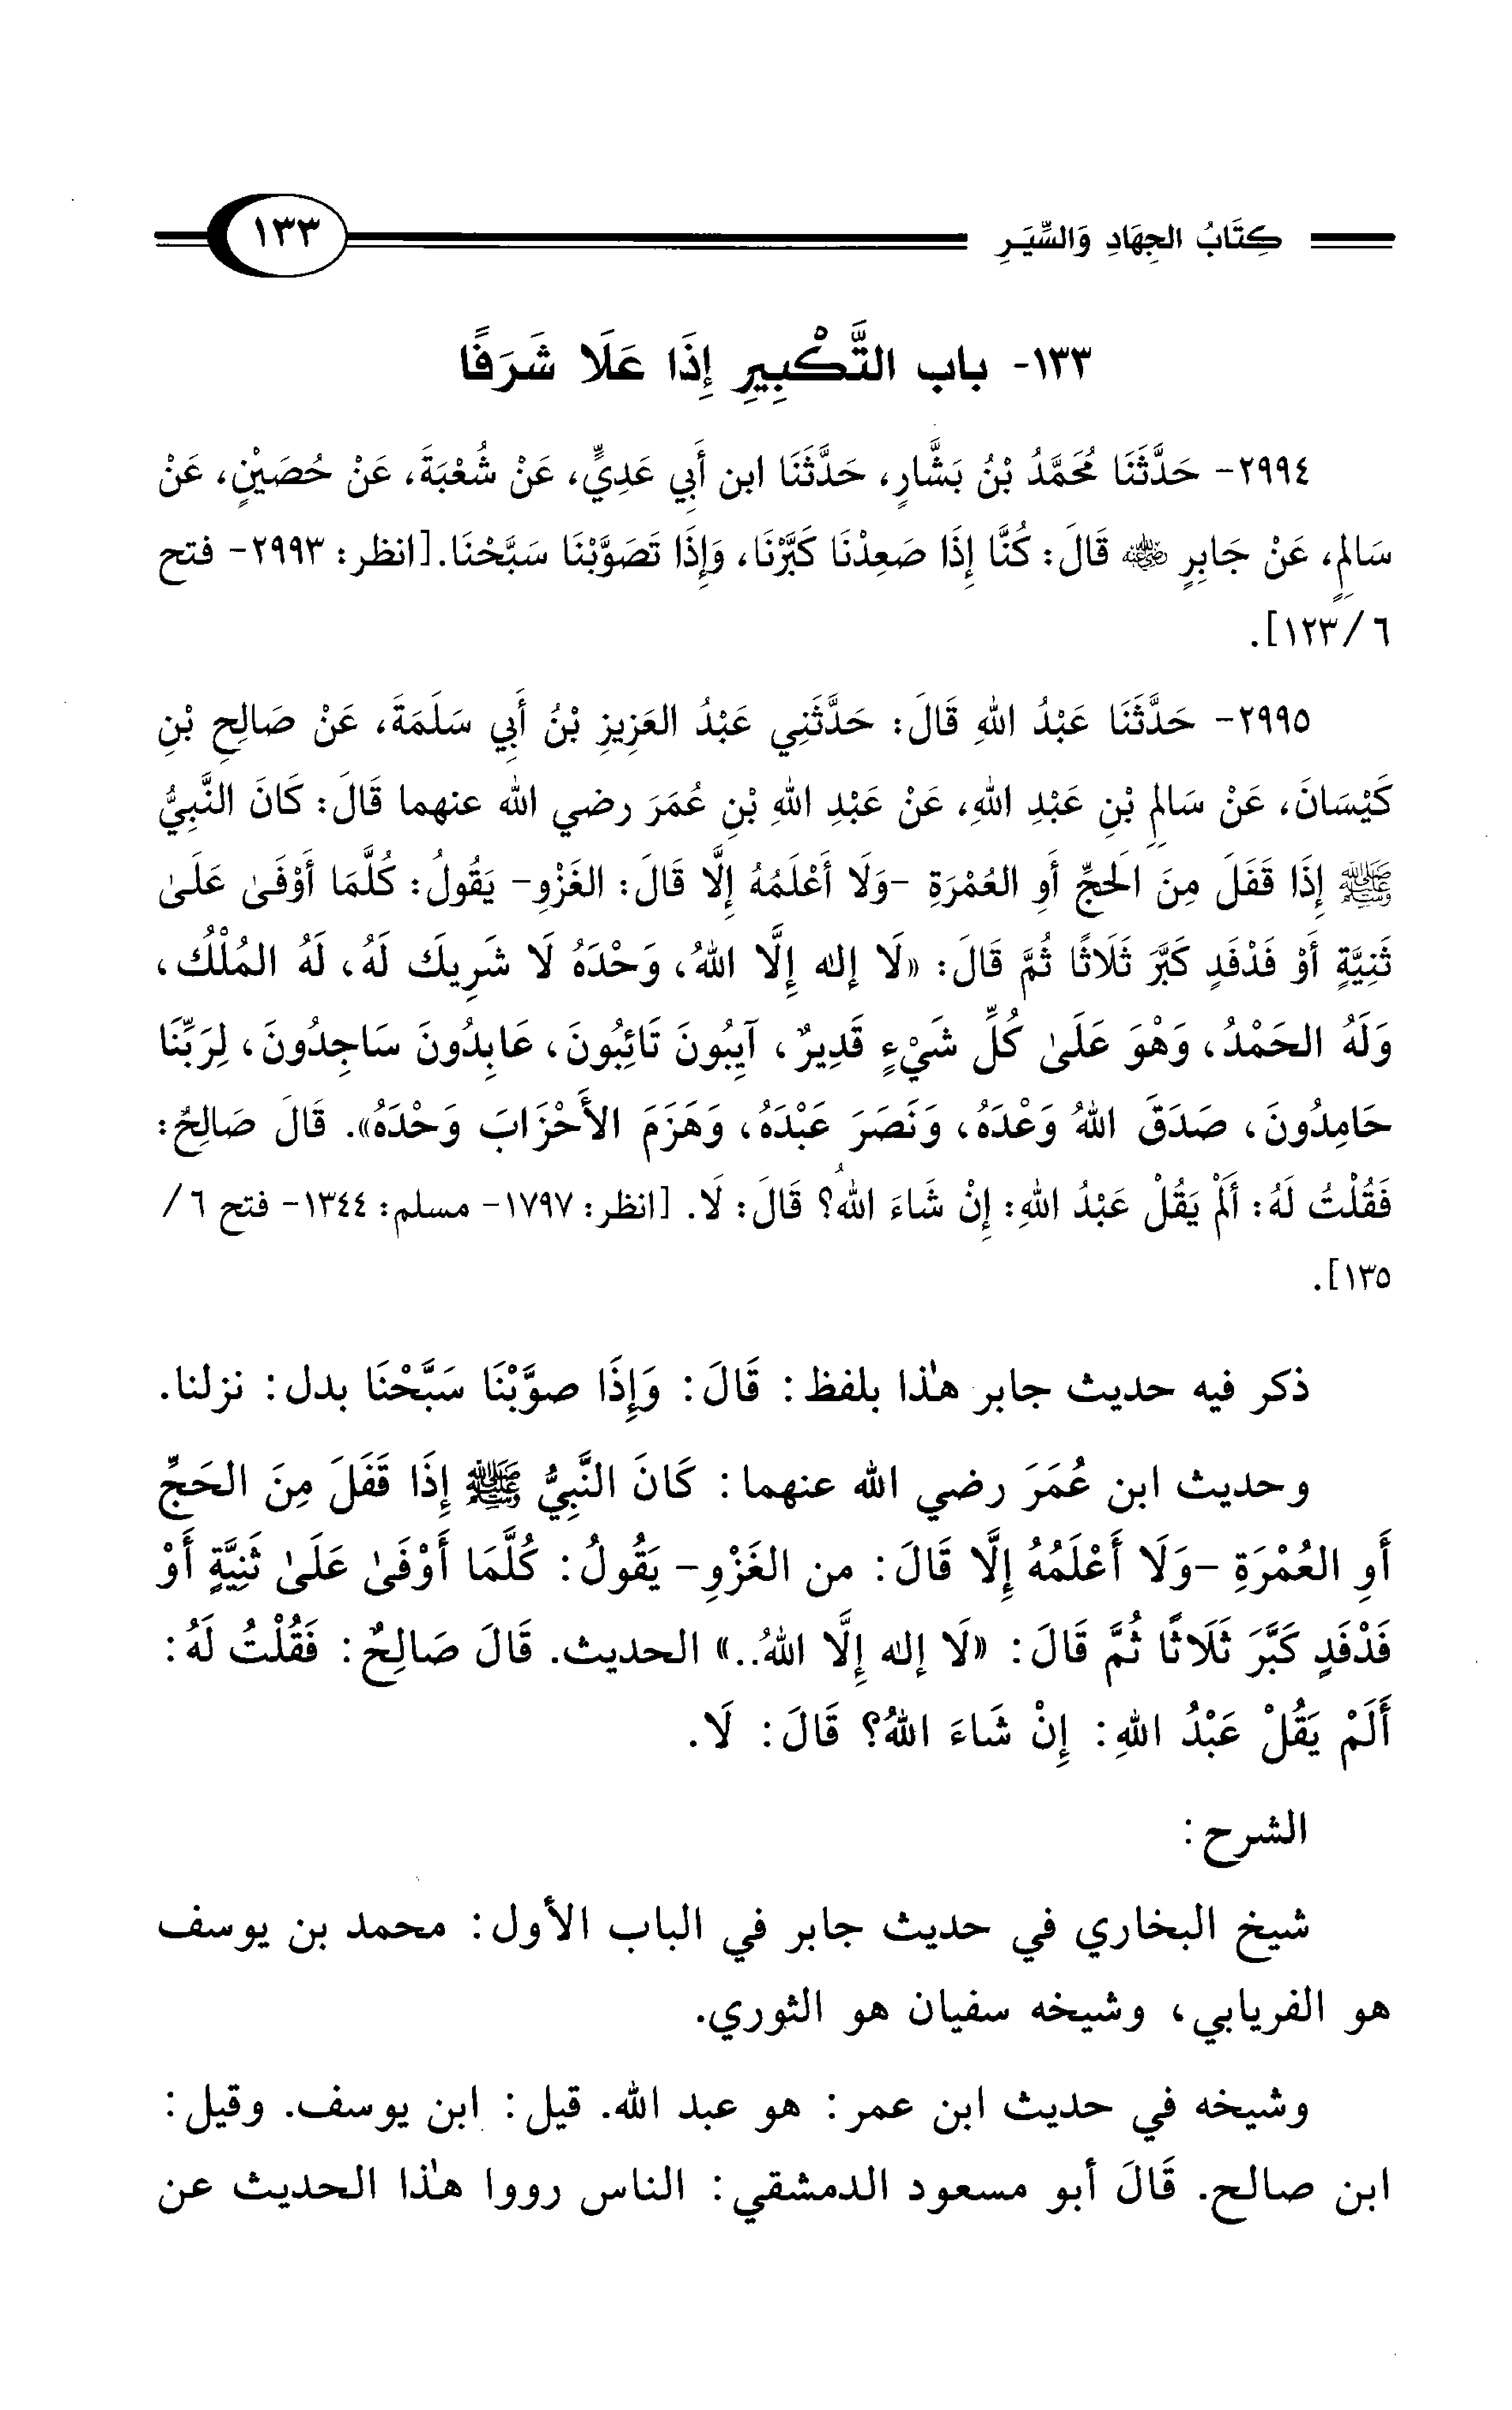 كِتَابُ الجِهَادِ وَالسِّيَرِ ١٣٣
١٣٣- باب التَّكْبِيرِ إِذَا عَلَا شَرَفًا
٢٩٩٤- حَدَّثَنَا مُحَمَّدُ بْنُ بَشَّارٍ، حَدَّثَنَا ابن أَبِي عَدِيٍّ، عَنْ شُعْبَةَ، عَنْ حُصَيْنٍ، عَنْ
سَالِمٍ، عَنْ جَابِرٍ ﵁ قَالَ: كُنَّا إِذَا صَعِدْنَا كَبَّرْنَا، وَإِذَا تَصَوَّبْنَا سَبَّحْنَا.[انظر: ٢٩٩٣- فتح
٦/١٢٣].
٢٩٩٥- حَدَّثَنَا عَبْدُ اللهِ قَالَ: حَدَّثَنِي عَبْدُ العَزِيزِ بْنُ أَبِي سَلَمَةَ، عَنْ صَالِحِ بْنِ
كَيْسَانَ، عَنْ سَالِمِ بْنِ عَبْدِ اللهِ، عَنْ عَبْدِ اللهِ بْنِ عُمَرَ رضي الله عنهما قَالَ: كَانَ النَّبِيُّ
ﷺ إِذَا قَفَلَ مِنَ الَحجِّ أَوِ العُمْرَةِ -وَلَا أَعْلَمُهُ إِلَّا قَالَ: الغَزْوِ- يَقُولُ: كُلَّمَا أَوْفَىٰ عَلَىٰ
ثَنِيَّةٍ أَوْ فَدْفَدٍ كَبَّرَ ثَلَاثًا ثُمَّ قَالَ: «لَا إله إِلَّا اللهُ، وَحْدَهُ لَا شَرِيكَ لَهُ، لَهُ المُلْكُ،
وَلَهُ الحَمْدُ، وَهْوَ عَلَىٰ كُلِّ شَيْءٍ قَدِيرٌ، آيِبُونَ تَائِبُونَ، عَابِدُونَ سَاجِدُونَ، لِرَبِّنَا
حَامِدُونَ، صَدَقَ اللهُ وَعْدَهُ، وَنَصَرَ عَبْدَهُ، وَهَزَمَ الأَحْزَابَ وَحْدَهُ». قَالَ صَالِحٌ:
فَقُلْتُ لَهُ: أَلَمْ يَقُلْ عَبْدُ اللهِ: إِنْ شَاءَ اللهُ؟ قَالَ: لَا. [انظر: ١٧٩٧- مسلم: ١٣٤٤- فتح ٦/
١٣٥].
ذكر فيه حديث جابر هٰذا بلفظ: قَالَ: وَإِذَا صوَّبْنَا سَبَّحْنَا بدل: نزلنا.
وحديث ابن عُمَرَ رضي الله عنهما: كَانَ النَّبِيُّ ﷺ إِذَا قَفَلَ مِنَ الحَجِّ
أَوِ العُمْرَةِ -وَلَا أَعْلَمُهُ إِلَّا قَالَ: من الغَزْوِ- يَقُولُ: كُلَّمَا أَوْفَىٰ عَلَىٰ ثَنِيَّةٍ أَوْ
فَدْفَدٍ كَبَّرَ ثَلَاثًا ثُمَّ قَالَ: «لَا إله إِلَّا اللهُ..» الحديث. قَالَ صَالِحٌ: فَقُلْتُ لَهُ:
أَلَمْ يَقُلْ عَبْدُ اللهِ: إِنْ شَاءَ اللهُ؟ قَالَ: لَا.
الشرح:
شيخ البخاري في حديث جابر في الباب الأول: محمد بن يوسف
هو الفريابي، وشيخه سفيان هو الثوري.
وشيخه في حديث ابن عمر: هو عبد الله. قيل: ابن يوسف. وقيل:
ابن صالح. قَالَ أبو مسعود الدمشقي: الناس رووا هٰذا الحديث عن